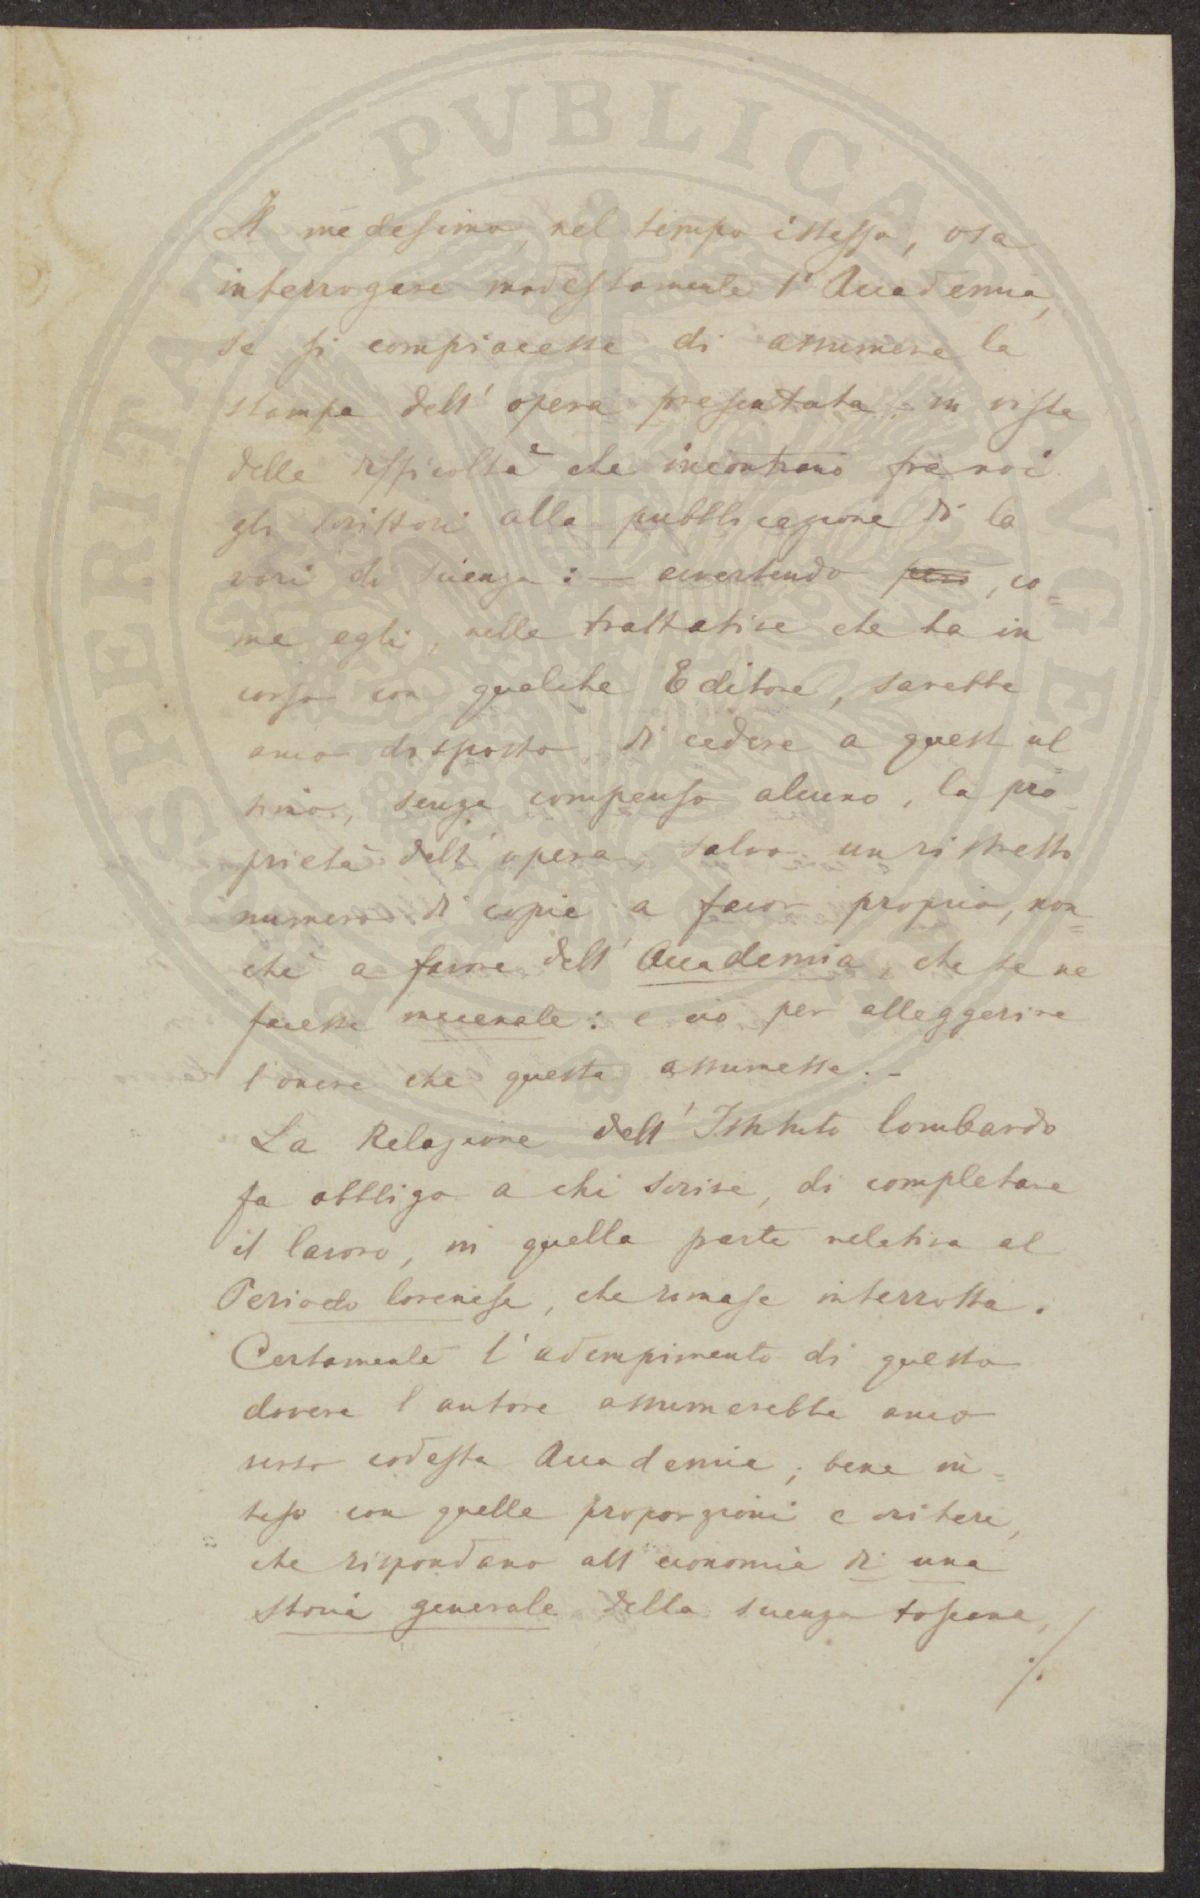 Il medesimo, nel tempo istesso, osa
interrogare modestamente l'Accademia,
se si compiacesse di assumere la
stampa dell'opera presentata, in vista
delle difficoltà che incontrano fra noi
gli scrittori alla pubblicazione di la
vori di scienza: — avvertendo però, co=
me egli, nelle trattative che ha in
corso con qualche Editore, sarebbe
anco disposto di cedere a quest'ul
timo, senza compenso alcuno, la pro=
prietà dell'opera, salvo un ristretto
numero di copie a favor proprio, non=
chè a favore dell'Accademia, che se ne
facesse mecenate: e ciò per alleggerire
l'onere che questa assumesse. -
La Relazione dell'Istituto lombardo
fa obbligo a chi scrive, di completare
il lavoro, in quella parte relativa al
Periodo lorenese, che rimase interrotta.
Certamente l'adempimento di questo
dovere l'autore assumerebbe anco
verso codesta Accademia; bene in=
teso con quelle proporzioni e criteri,
che rispondano all'economia di una
storia generale della scienza toscana,
./.
PVBLICAE
PROSPERITATI
AVGENDAE